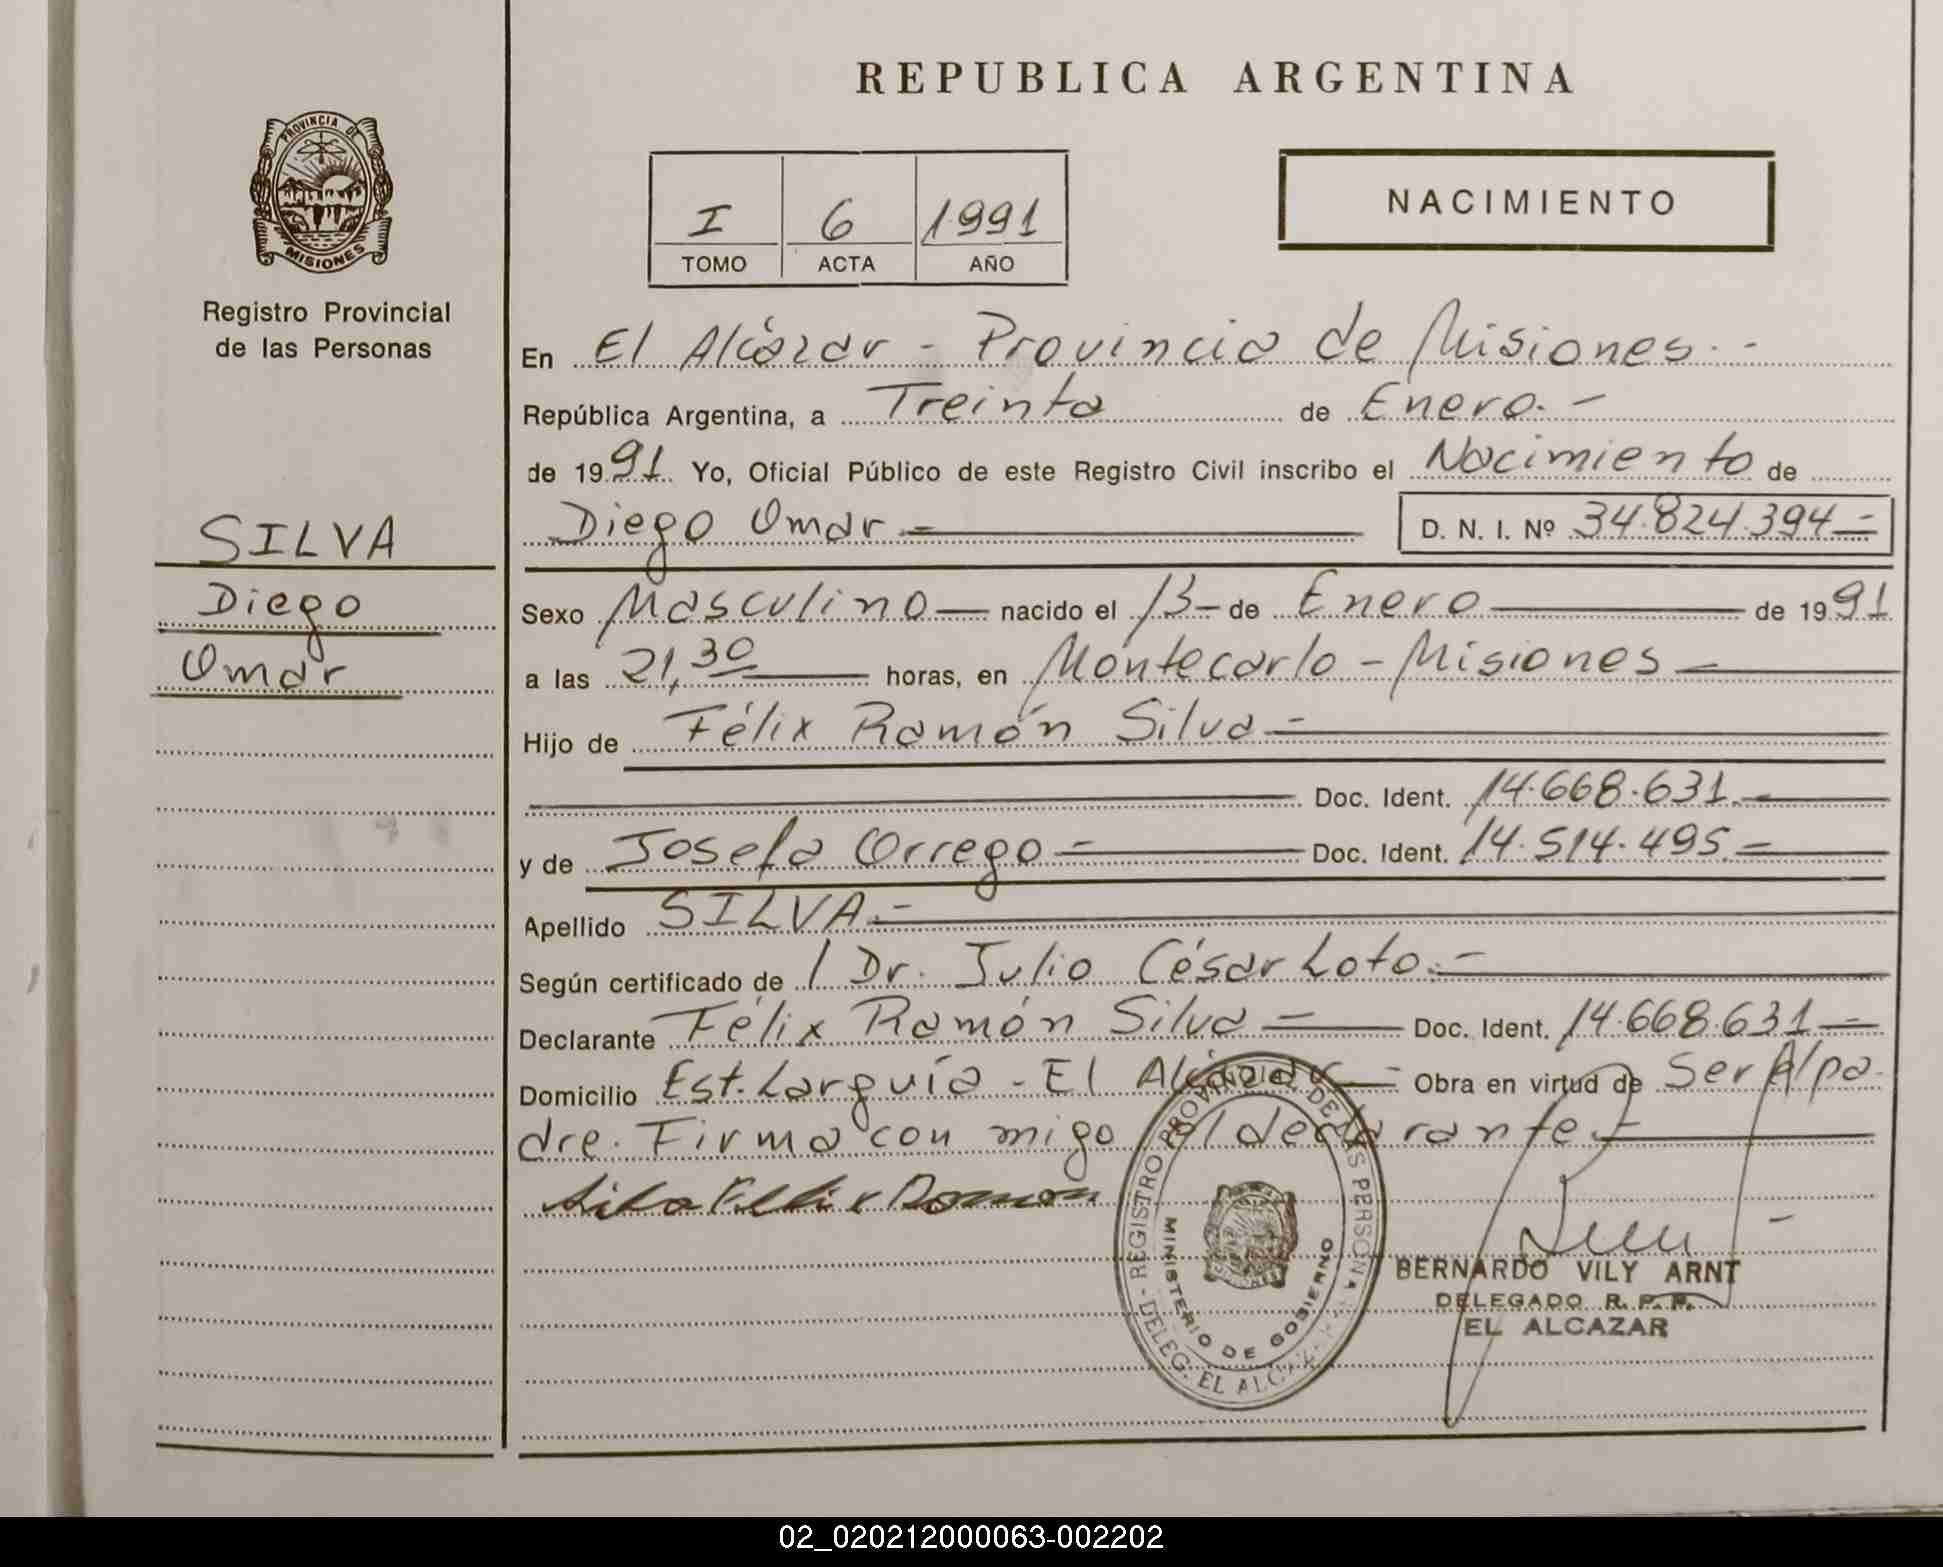 REPUBLICA ARGENTINA
PROVINCIA DE
MISIONES
Registro Provincial
de las Personas
I 6 1991
TOMO ACTA AÑO
NACIMIENTO
En El Alcázar - Provincia de Misiones. -
República Argentina, a Treinta de Enero. -
de 1991. Yo, Oficial Público de este Registro Civil inscribo el Nacimiento de
Diego Omar = D. N. I. Nº 34.824.394 =
SILVA
Diego
Omar
Sexo Masculino — nacido el 13 - de Enero — de 1991
a las 21,30 — horas, en Montecarlo - Misiones —
Hijo de Félix Ramón Silva =
Doc. Ident. 14.668.631. —
y de Josefa Orrego = Doc. Ident. 14.514.495. =
Apellido SILVA. -
Según certificado de / Dr. Julio César Loto. -
Declarante Félix Ramón Silva = Doc. Ident. 14.668.631 =
Domicilio Est. Larguía - El Alcázar - Obra en virtud de Ser El pa
dre. Firma con migo el declarante. -
Silva Felix Ramon
REGISTRO PROVINCIAL DE LAS PERSONAS - DELEG. EL ALCAZAR
MINISTERIO DE GOBIERNO
BERNARDO VILY ARNT
DELEGADO R. P. P.
EL ALCAZAR
02_020212000063-002202